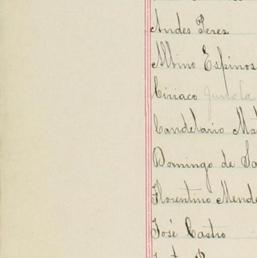 Andes Perez
Albino Espinos
Ciriaco Gurola
Candelario Ma
Domingo de Sa
Florentino Mende
José Castro